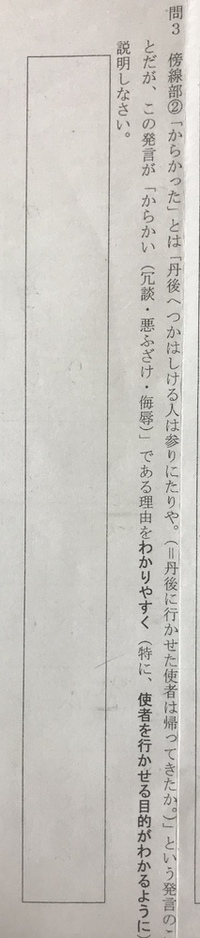 問3 傍線部②「からかった」とは「丹後へつかはしける人は参りにたりや。(=丹後に行かせた使者は帰ってきたか。)」という発言のこ
とだが、この発言が「からかい(冗談・悪ふざけ・侮辱)」である理由をわかりやすく(特に、使者を行かせる目的がわかるように)
説明しなさい。